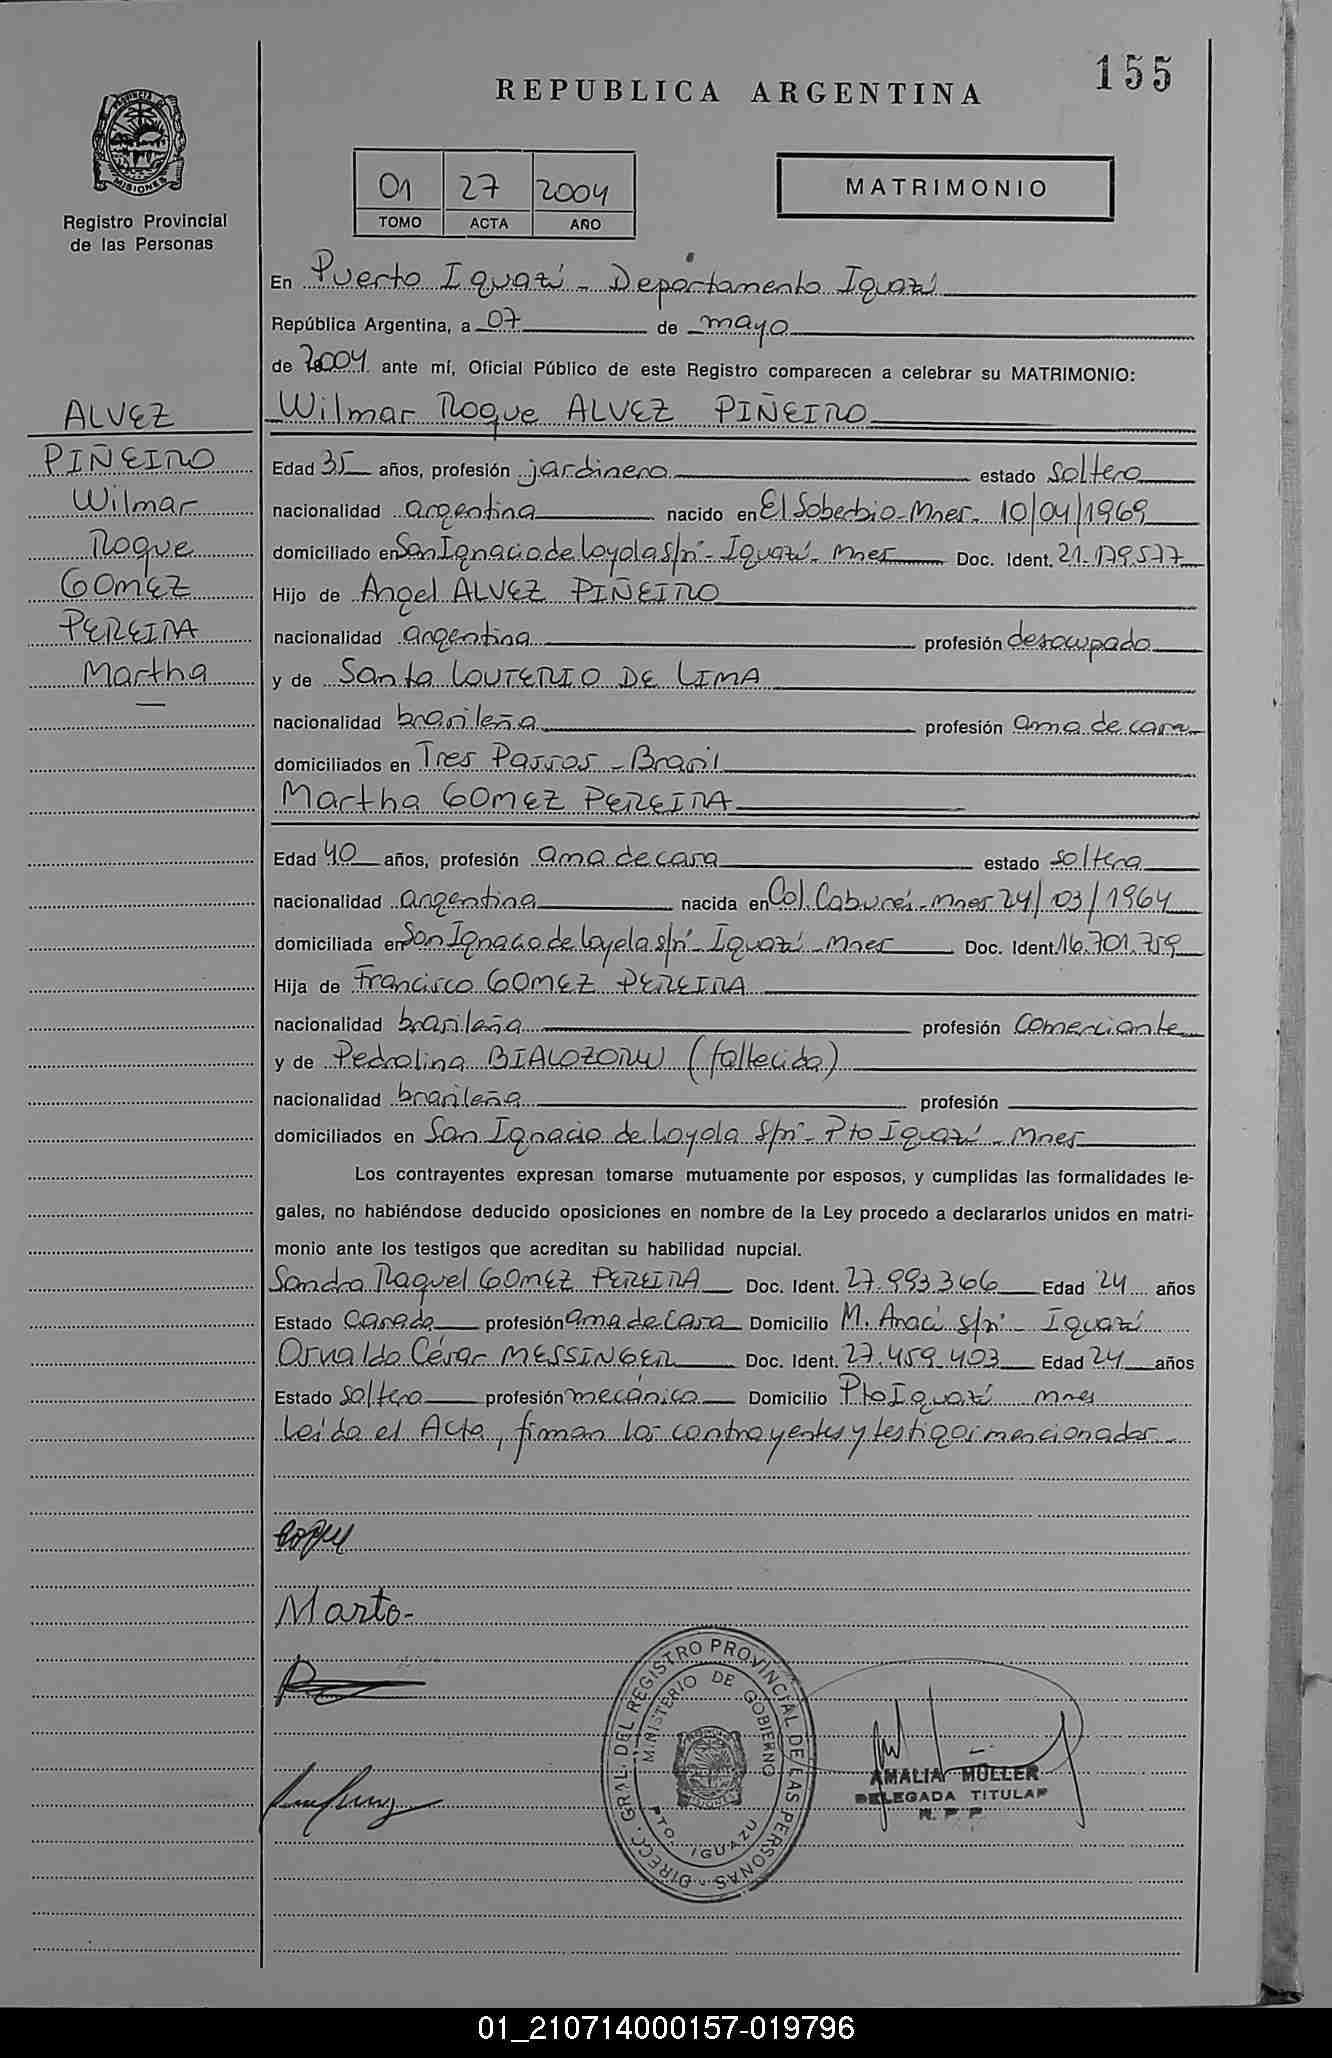 155
REPUBLICA ARGENTINA
PROVINCIA DE
MISIONES
Registro Provincial
de las Personas
01 27 2004
TOMO ACTA AÑO
MATRIMONIO
En Puerto Iguazú - Departamento Iguazú
República Argentina, a 07 de mayo
de 2004 ante mí, Oficial Público de este Registro comparecen a celebrar su MATRIMONIO:
ALVEZ
PIÑEIRO
Wilmar
Roque
GOMEZ
PEREIRA
Martha
Wilmar Roque ALVEZ PIÑEIRO
Edad 35 años, profesión jardinero estado soltero
nacionalidad argentina nacido en El Soberbio-Mnes. 10/04/1969
domiciliado en San Ignacio de Loyola s/nº - Iguazú - Mnes Doc. Ident. 21.179.577
Hijo de Angel ALVEZ PIÑEIRO
nacionalidad argentina profesión desocupado
y de Santa LOUTERIO DE LIMA
nacionalidad brasileña profesión ama de casa
domiciliados en Tres Passos - Brasil
Martha GOMEZ PEREIRA
Edad 40 años, profesión ama de casa estado soltera
nacionalidad argentina nacida en Col. Caburéi - Mnes 24/03/1964
domiciliada en San Ignacio de Loyola s/nº Iguazú - Mnes Doc. Ident. 16.701.759
Hija de Francisco GOMEZ PEREIRA
nacionalidad brasileña profesión comerciante
y de Pedrolina BIALOZORW (fallecida)
nacionalidad brasileña profesión
domiciliados en San Ignacio de Loyola s/nº - Pto Iguazú - Mnes
Los contrayentes expresan tomarse mutuamente por esposos, y cumplidas las formalidades le-
gales, no habiéndose deducido oposiciones en nombre de la Ley procedo a declararlos unidos en matri-
monio ante los testigos que acreditan su habilidad nupcial.
Sandra Raquel GOMEZ PEREIRA Doc. Ident. 27.993.366 Edad 24 años
Estado casada profesión ama de casa Domicilio M. Aracì s/nº - Iguazú
Osvaldo César MESSINGER Doc. Ident. 27.459.403 Edad 24 años
Estado soltero profesión mecánico Domicilio Pto Iguazú Mnes
Leída el Acta, firman los contrayentes y testigos mencionados.
Marta-
DIRECC. GRAL. DEL REGISTRO PROVINCIAL DE LAS PERSONAS
MINISTERIO DE GOBIERNO
PTO. IGUAZU
AMALIA MÜLLER
DELEGADA TITULAR
R. P. P.
01_210714000157-019796